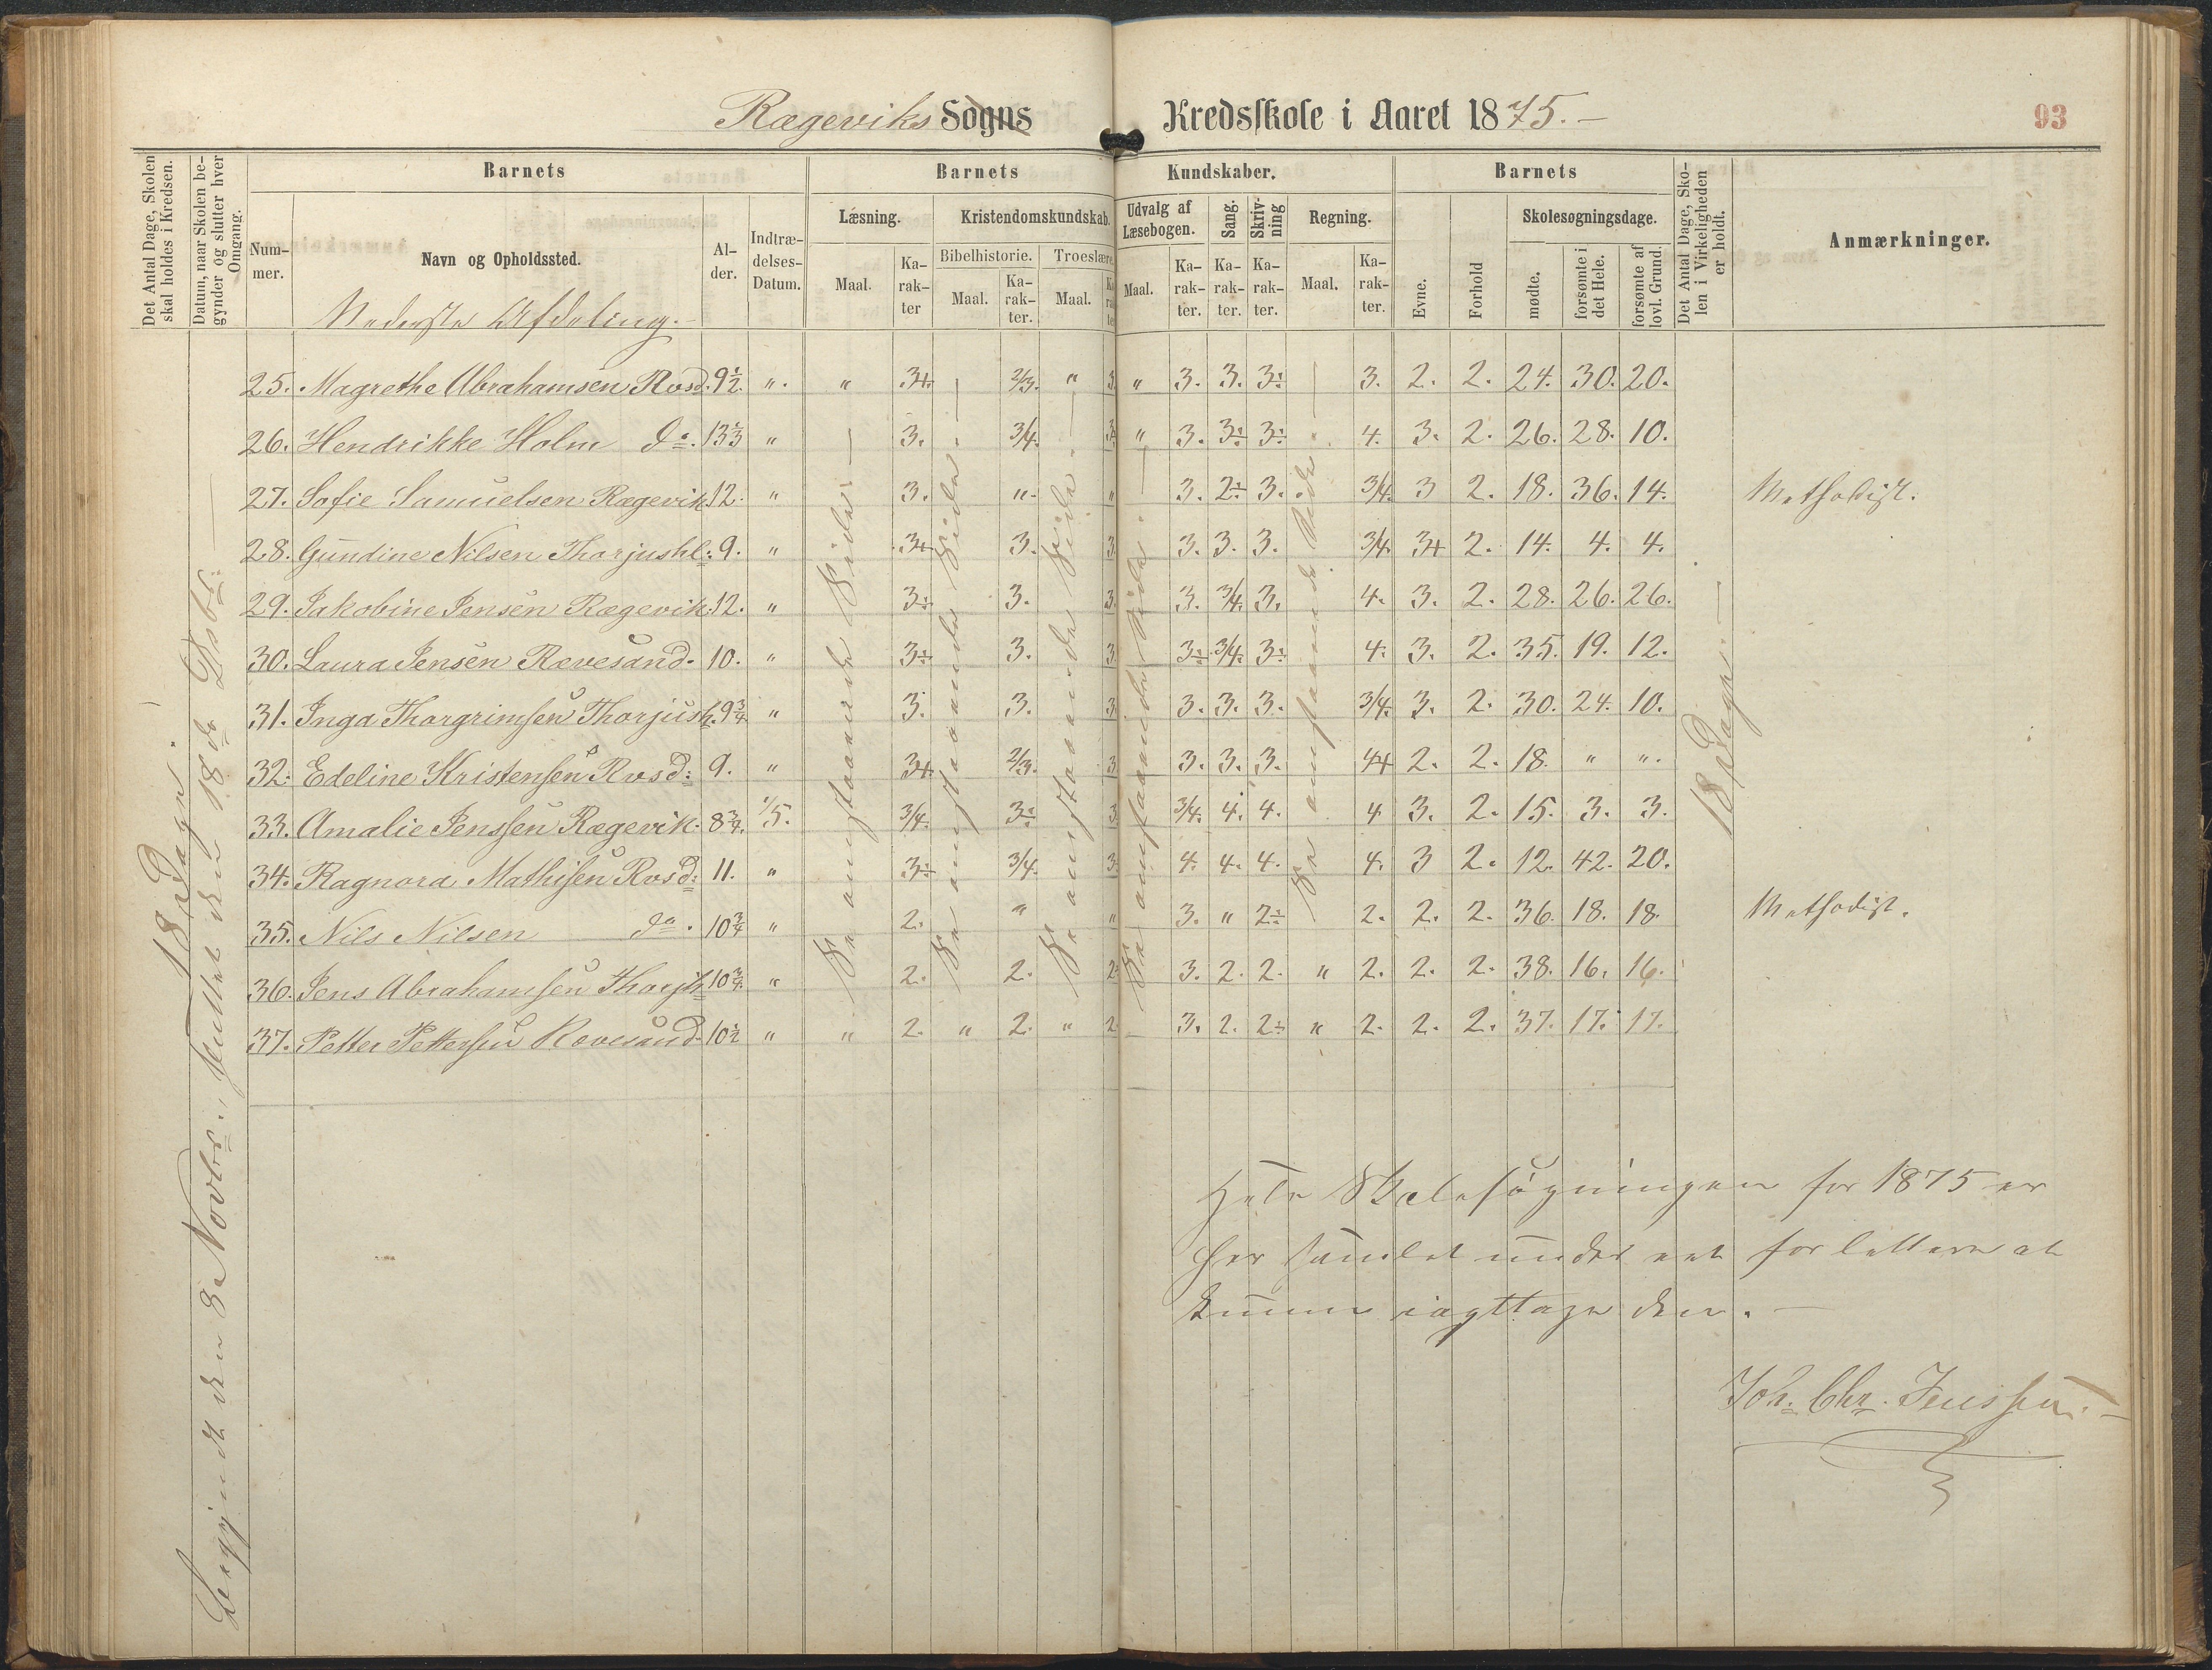 Rægeviks Sogns Kredsskole i Aaret 1875.-
93
Det Antal Dage, Skolen skal holdes i Kredsen.
Datum, naar Skolen begynder og slutter hver Omgang.
Barnets
Nummer.
Navn og Opholdssted.
Alder.
Indtrædelses-Datum.
Barnets Kundskaber.
Læsning.
Maal.
Karakter
Kristendomskundskab.
Bibelhistorie.
Maal.
Karakter.
Troeslære
Maal.
Udvalg af Læsebogen.
Maal.
Karakter.
Sang.
Karakter.
Skrivning
Karakter.
Regning.
Maal.
Karakter.
Barnets
Evne.
Forhold
Skolesøgningsdage.
mødte.
forsømte i det Hele.
forsømte af lovl. Grund.
Det Antal Dage, Skolen i Virkeligheden er holdt.
Anmærkninger.
Nederste Afdeling.-
25. Magrethe Abrahamsen Rvsd. 9½. ". " 3+. 2/3. " 3. " 3. 3. 3÷ 3. 2. 2. 24. 30. 20.
26. Hendrikke Holm do. 13⅓ " 3. 3/4. 3. " 3. 3÷ 3÷ 4. 3. 2. 26. 28. 10.
27. Sofie Samuelsen Rægevik. 12. " 3. ". " 3. 2÷ 3. 3/4. 3 2. 18. 36. 14. Methodist.
28. Gundine Nilsen Thorjushl: 9. " 3+ 3. 3. 3. 3. 3. 3/4. 3+ 2. 14. 4. 4.
29. Jakobine Jensen Rægevik. 12. " 3÷ 3. 3. 3. 3/4. 3. 4. 3. 2. 28. 26. 26.
30. Laura Jensen Rævesand. 10. " 3÷ 3. 3. 3÷ 3/4. 3÷ 4. 3. 2. 35. 19. 12.
31. Inga Thorgrimsen Thorjush. 9¾ " 3. 3. 3. 3. 3. 3. 3/4. 3. 2. 30. 24. 10.
32. Edeline Kristensen Rvsd: 9. " 3+. 2/3. 3 3. 3. 3. 4+ 2. 2. 18. " ".
33. Amalie Jenssen Rægevik. 8¾. 1/5. 3/4. 3÷ 3. 3/4. 4. 4. 4 3. 2. 15. 3. 3.
34. Ragnora Mathisen Rvsd: 11. " 3÷ 3/4. 3. 4. 4. 4. 4. 3 2. 12. 42. 20.
35. Nils Nilsen do. 10¾ " 2. " " 3. " 2÷ 2. 2. 2. 36. 18. 18. Methodist.
36. Jens Abrahamsen Thorjh 10¾. " 2. 2. 2. 3. 2. 2. " 2. 2. 2. 38. 16. 16.
37. Petter Pettersen Rævesand. 10½ " " 2. " 2. " 2 3. 2. 2÷ " 2. 2. 2. 37. 17. 17.
18 Dage.
Begyndt den 3e Novbr., sluttet den 18de Dsbr.
Se omstaaende Side.
Se omstaaende Side.
Se omstaaende Side.
Se omstaaende Side.
Se omstaaende Side.
18 Dage.
Hele Skolesøgningen for 1875 er
her samlet under eet for lettere at
kunne iagttage den.-
Joh. Chr. Jenssen.-